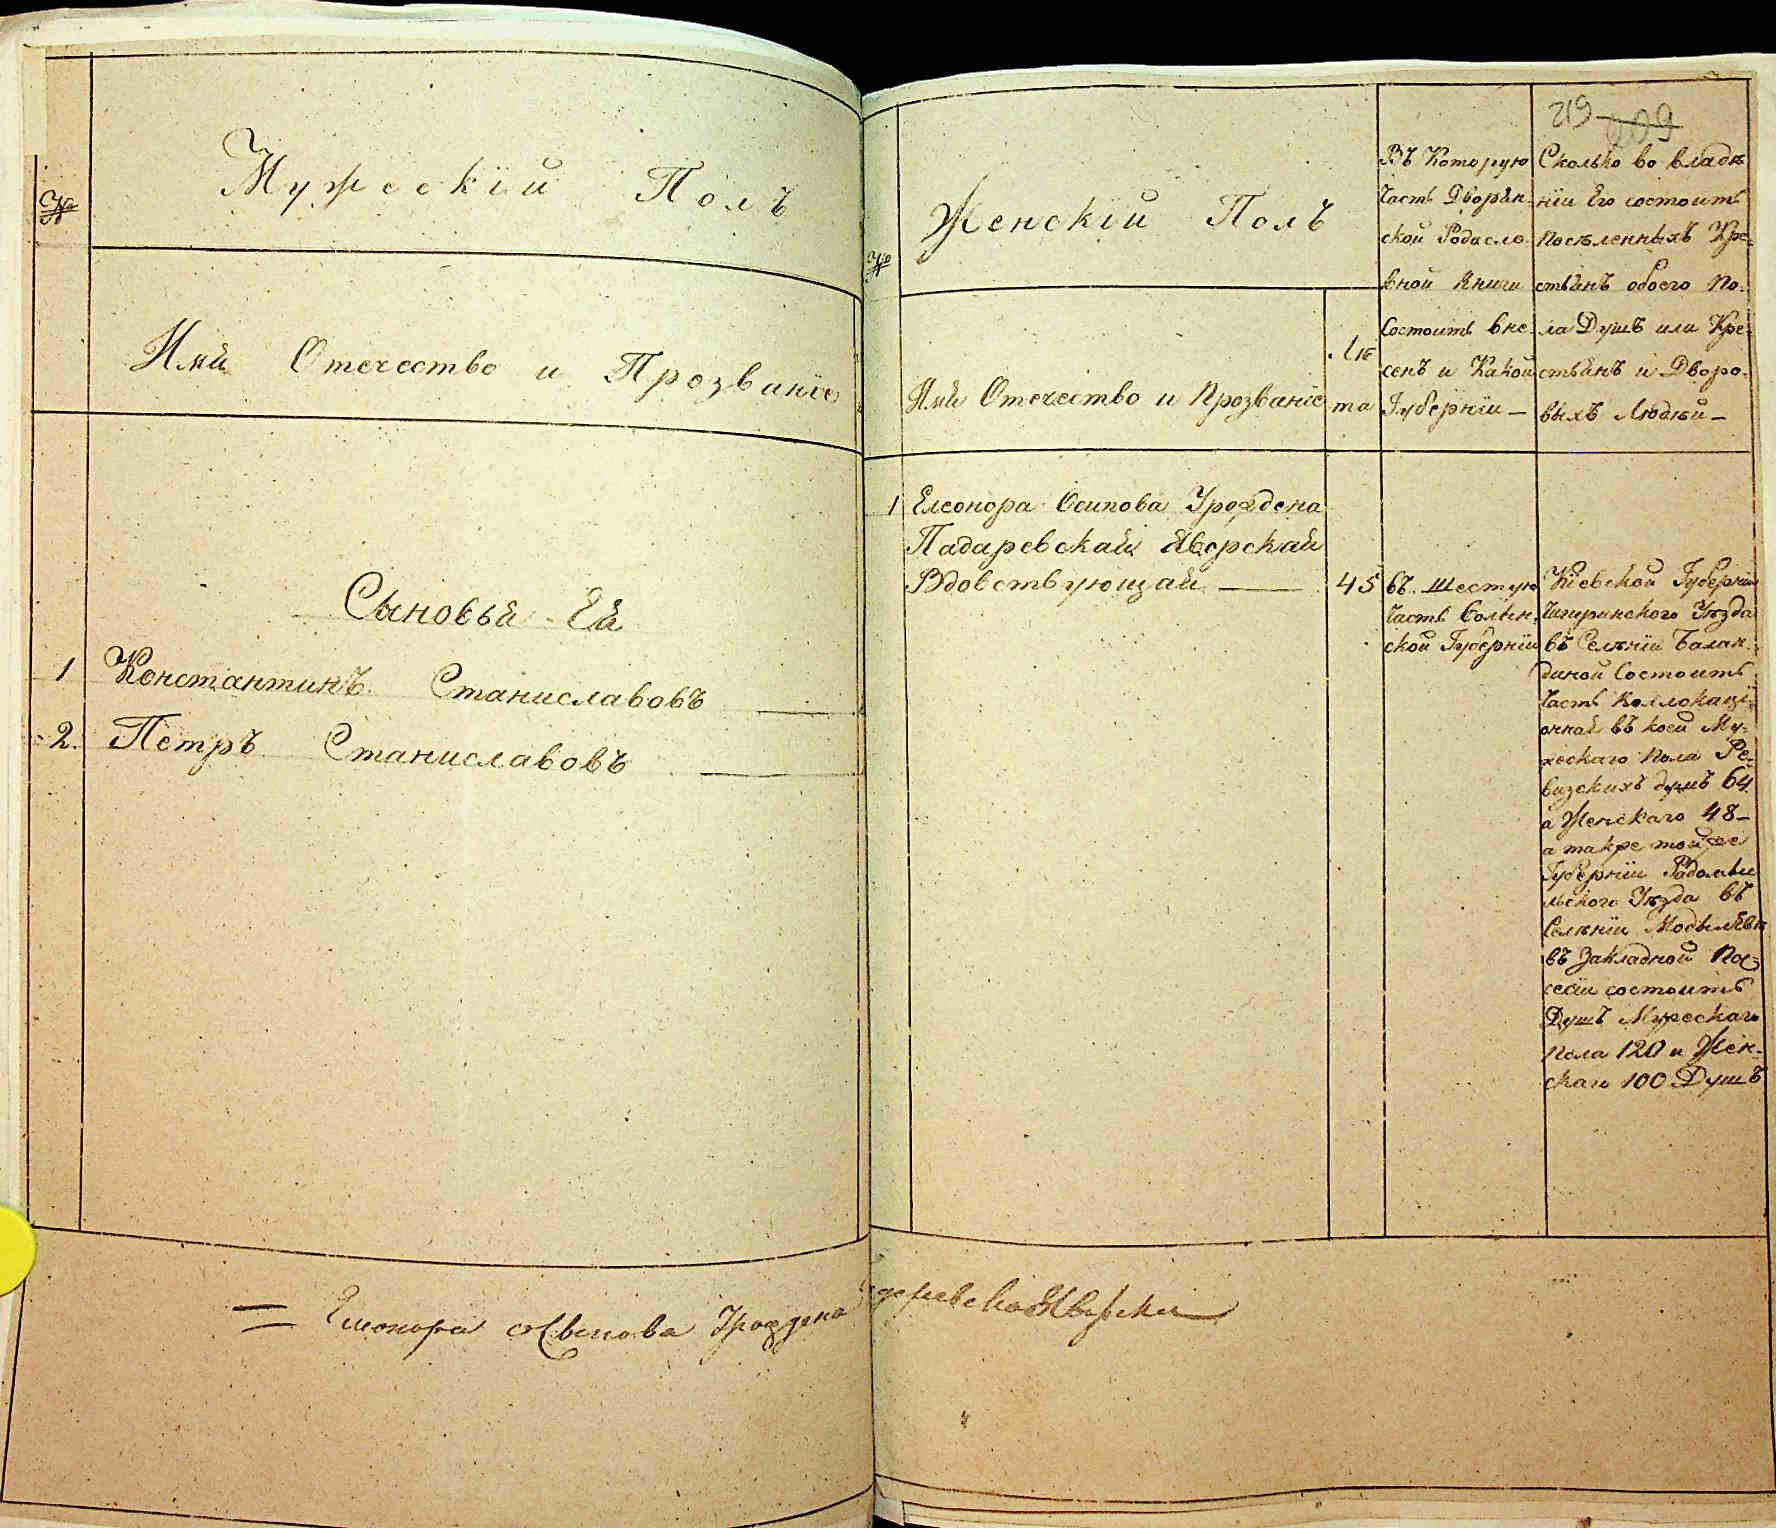 №
Мужескїй Полъ
Имя Отечество и Прозванїе
Сыновья Ея
1 Константинъ Станиславовъ
2. Петръ Станиславовъ
№
Женскїй Полъ
Имя Отечество и Прозванїе
Лѣ
та
Въ Которую
Часть Дворян-
ской Родосло-
вной Книги
Состоитъ вне-
сенъ и Какой
Губернїи —
219
Сколько во владѣ
нїи Его состоитъ
Поселенныхъ Кре-
стьянъ обоего По-
ла Душъ или Кре-
стьянъ и Дворо-
выхъ Людѣй —
1 Елеонора Осипова Урождена
Падаревская Яворская
Вдовствующая — 45
въ Шестую
Часть Волын-
ской Губернїи
Кїевской Губернїи
Чигринского Уѣзда
въ Селѣнїи Балан-
диной Состоитъ
Часть Коллокацї-
онная въ коей Му-
жескаго Пола Ре-
визскихъ душъ 64
а Женскаго 48 —
а также той же
Губернїи Радомы
льского Уѣзда въ
Селѣнїи
въ Закладной Пос-
сесїи состоитъ
Душъ Мужескаго
Пола 120 и Жен-
скаго 100 Душъ
Елеонора Урождена